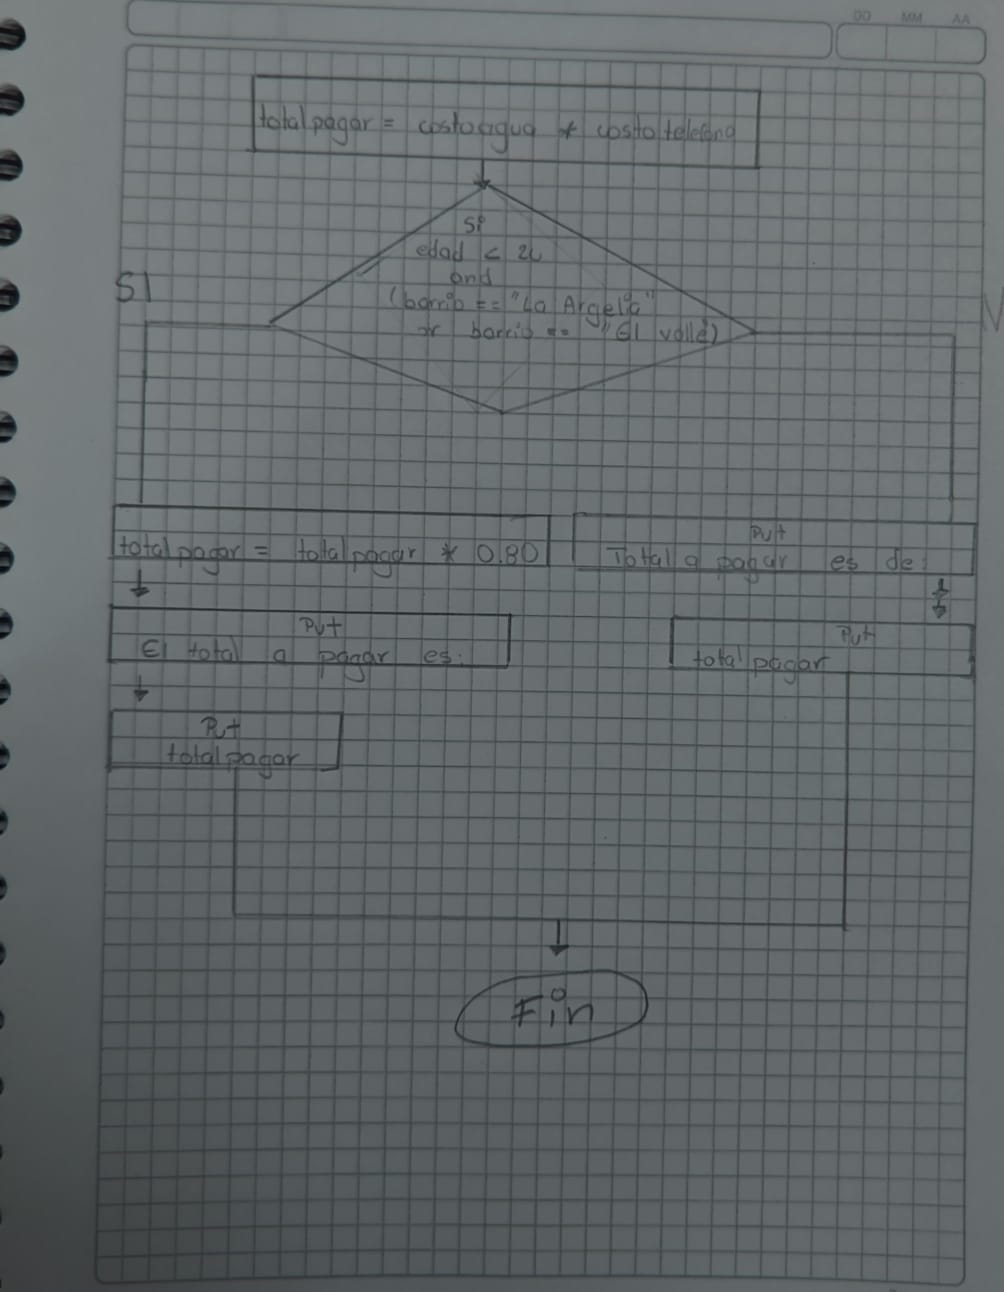 DD MM AA
total pagar = costo agua * costo telefono
Si
edad < 24
and
(barrio == "La Argelia"
or barrio == "El valle)
SI
N
total pagar = total pagar * 0.80
Put
Total a pagar es de:
Put
El total a pagar es:
Put
total pagar
Put
total pagar
Fin